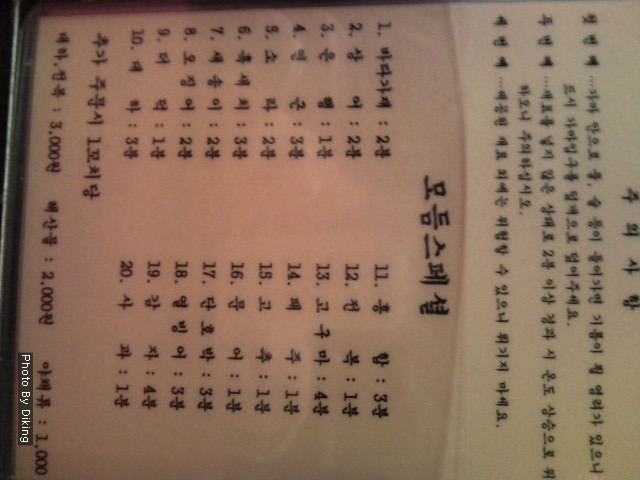 주 의 사 항
첫 번 째 …자마 안으로 물, 술 등이 들어가면 기름이 튈 염려가 있으니
도시 자마입구를 덮개으로 덮어주세요.
두 번 째 …재료를 넣지 않은 상태로 2분 이상 경과 시 온도 상승으로 위
하오니 주의하십시요.
세 번 째 …제공된 재료 외에는 위험할 수 있으니 튀기지 마세요.
모듬스페셜
1. 바다가재 : 2분
2. 상 어 : 2분
3. 은 행 : 1분
4. 연 근 : 3분
5. 소 라 : 2분
6. 흑새치 : 3분
7. 새송이 : 2분
8. 오징어 : 2분
9. 더 덕 : 1분
10. 대 하 : 3분
11. 홍 합 : 3분
12. 전 복 : 1분
13. 고구마 : 4분
14. 패 주 : 1분
15. 고 추 : 1분
16. 문 어 : 1분
17. 단호박 : 3분
18. 열빙어 : 3분
19. 감 자 : 4분
20. 사 과 : 1분
추가 주문시 1꼬치당
대하,전복 : 3,000원 해산물 : 2,000원 야채류 : 1,000
Photo By Diking